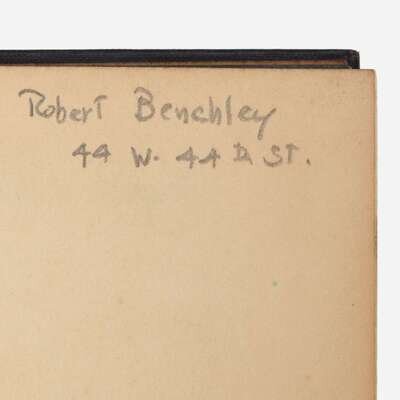 Robert Benchley
44 W. 44th ST.